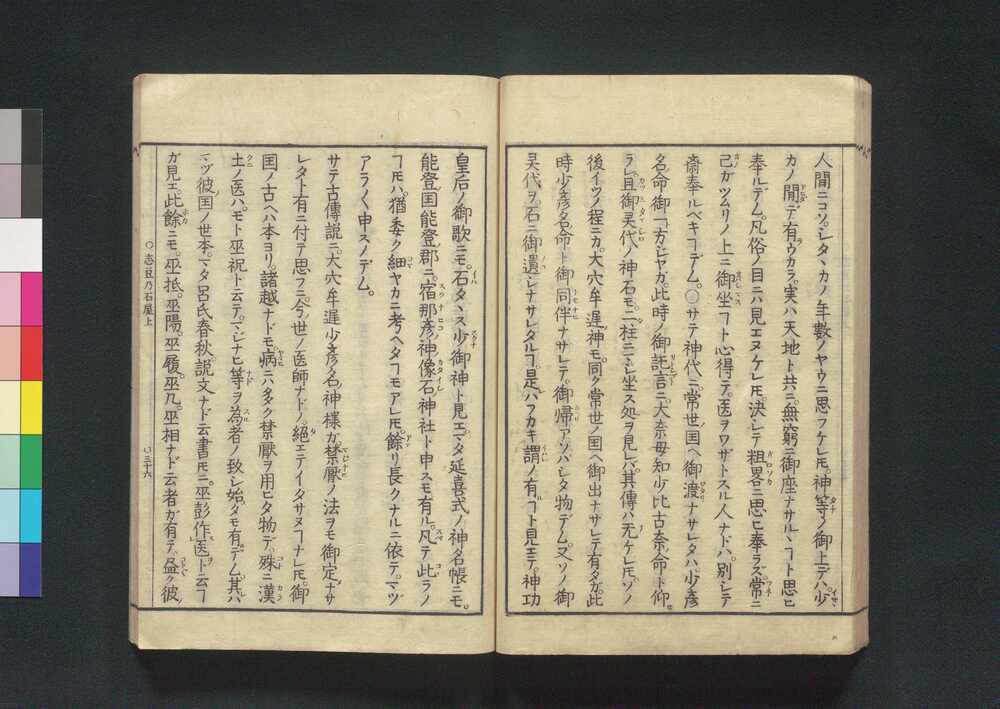 人間ニコソ。シタヽカノ年數ノヤウニ思フケレ𪜈。神等ノ御上デハ。少
カノ間デ有ウカラ。実ハ天地ト共ニ。無窮ニ御座ナサルヽヿト思ヒ
奉ルデム。凡俗ノ目ニハ見エヌケレ𪜈。決シテ粗畧ニ思ヒ奉ラズ。常ニ
己ガツムリノ上ニ御坐ヿト心得テ。医ヲワザトスル人ナドハ。別シテ
齋奉ルベキヿデム。○サテ神代ニ。常世国ヘ御渡ナサレタハ。少彦
名命御一方ジャガ。此時ノ御託言ニ。大奈毋知少比古奈命ト仰
ラレ。且御㚑代ノ神石モ。二柱ニマシ坐ス処ヲ見レバ。其傳ハ无ケレ𪜈。ソノ
後イツノ程ニカ。大穴牟遅神モ。同ク常世ノ国ヘ御出ナサレテ有タガ。此
時少彦名命ト御同伴ナサレテ。御帰アソバシタ物デム。又ソノ御
㚑代ヲ。石ニ御遺シナサレタルヿ。是ハフカキ謂ノ有ルヿト見エテ。神功
皇后ノ御歌ニモ。石タヽス少御神ト見エ。マタ延喜式ノ神名帳ニモ。
能登国能登郡ニ。宿那彦神像石神社ト申スモ有ル。凡テ此ラノ
ヿ𪜈ハ。猶委ク細ヤカニ考ヘタヿモアレ𪜈。餘リ長クナルニ依テ。マヅ
アラ〱申スノデム。
サテ古傳説ニ。大穴牟遅少彦名神様ガ。禁厭ノ法ヲモ御定ナサ
レタト有ニ付テ思フニ。今世ノ医師ナドノ。絕エテイタサヌヿナレ𪜈。御
国ノ古ヘハ本ヨリ。諸越ナドモ。病ニハ多ク禁厭ヲ用ヒタ物デ。殊ニ漢
土ノ医ハ。モト巫祝ト云テ。マジナヒ等ヲ為者ノ致シ始タモ有デム。其ハ
マヅ彼国ノ世本。マタ呂氏春秋。説文ナド云書𪜈ニ。巫彭作医ト云ヿ
ガ見エ。此餘ニモ。巫抵。巫陽。巫履。巫凡。巫相ナド云者ガ有テ。盛ク彼
○志豆乃石屋上
○三十六